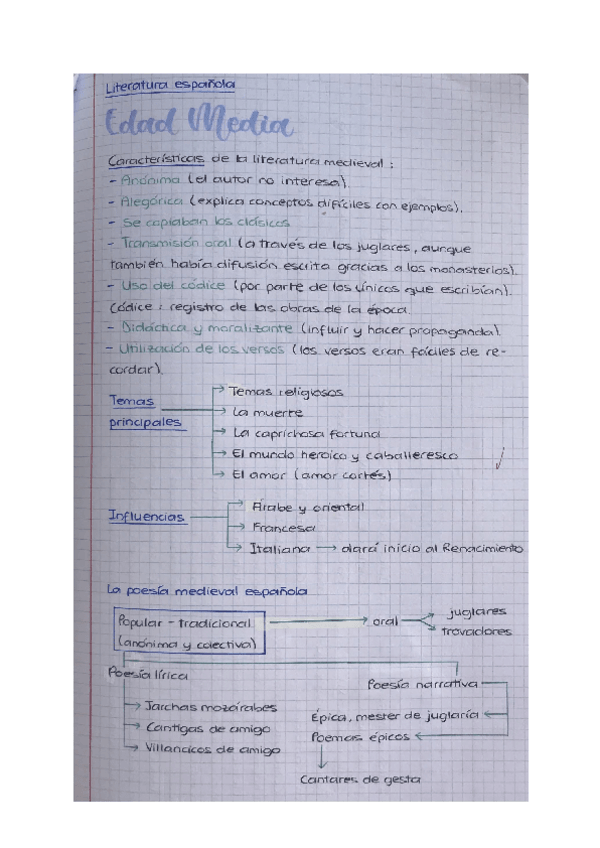 Literatura española
Edad Media
Características de la literatura medieval :
- Anónima (el autor no interesa).
- Alegórica (explica conceptos difíciles con ejemplos).
- Se copiaban los clásicos.
- Transmisión oral (a través de los juglares, aunque
también había difusión escrita gracias a los monasterios).
- Uso del códice (por parte de los únicos que escribían).
Códice : registro de las obras de la época.
- Didáctica y moralizante (influir y hacer propaganda).
- Utilización de los versos (los versos eran fáciles de re-
cordar).
Temas principales
→ Temas religiosos
→ La muerte
→ La caprichosa fortuna
→ El mundo heroico y caballeresco
→ El amor (amor cortés)
Influencias
→ Árabe y oriental
→ Francesa
→ Italiana → dará inicio al Renacimiento
La poesía medieval española
Popular - tradicional
(anónima y colectiva)
→ oral
juglares
trovadores
Poesía lírica
→ Jarchas mozárabes
→ Cantigas de amigo
→ Villancicos de amigo
Poesía narrativa
Épica, mester de juglaría ←
Poemas épicos ←
Cantares de gesta